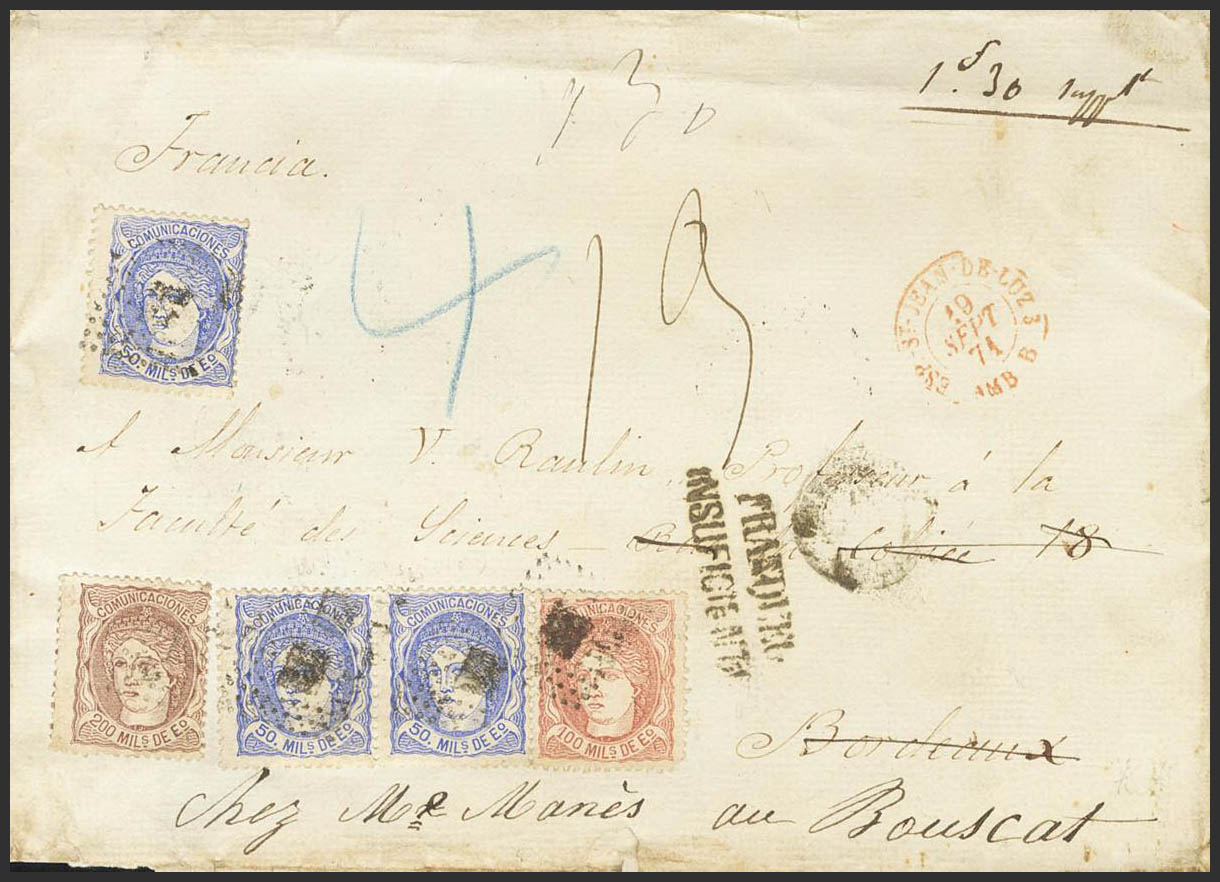 1f. 30
130
Francia.
COMUNICACIONES
50. MILS DE EO.
4
13
ESP. ST-JEAN-DE-LUZ
19
SEPT
71
AMB B
A Monsieur V. Raulin, Professeur à la
Faculté des Sciences — 18
FRANQUEO
INSUFICIENTE
COMUNICACIONES
200 MILS DE EO.
COMUNICACIONES
50. MILS DE EO.
COMUNICACIONES
50. MILS DE EO.
COMUNICACIONES
100 MILS DE EO.
Bordeaux
Chez Mr Manès au Bouscat